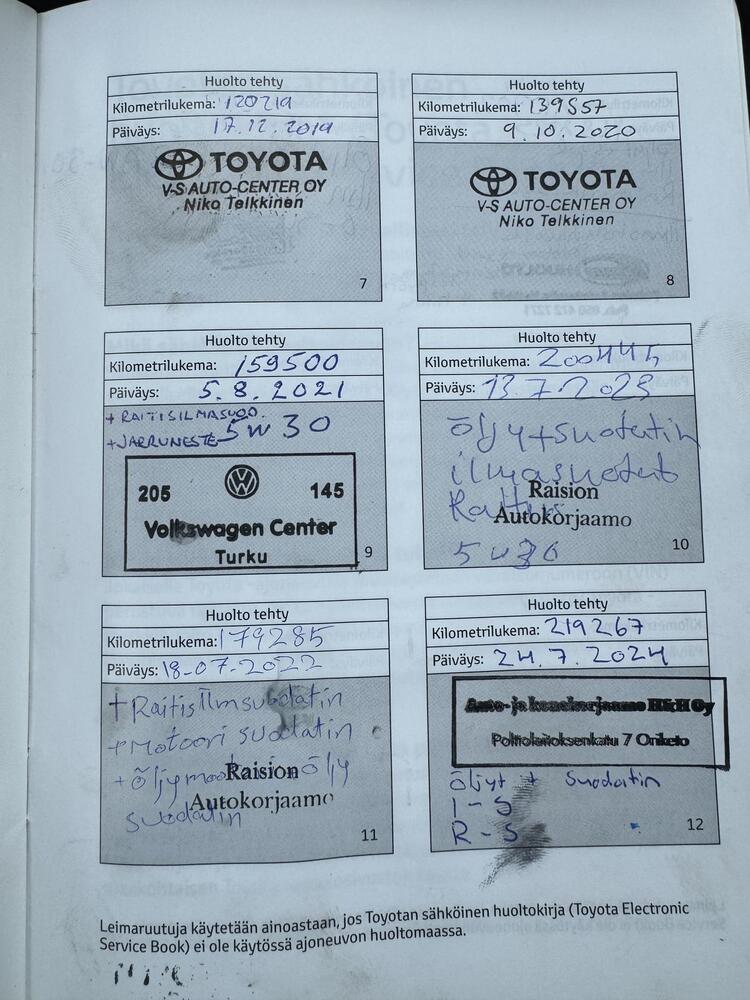 Huolto tehty
Kilometrilukema: 120219
Päiväys: 17.12.2019
TOYOTA
V-S AUTO-CENTER OY
Niko Telkkinen
7
Huolto tehty
Kilometrilukema: 139557
Päiväys: 9.10.2020
TOYOTA
V-S AUTO-CENTER OY
Niko Telkkinen
8
Huolto tehty
Kilometrilukema: 159500
Päiväys: 5.8.2021
+ RAITISILMASUOD.
+JARRUNESTE 5W30
205 145
Volkswagen Center
Turku
9
Huolto tehty
Kilometrilukema: 200445
Päiväys: 13.7.2023
öljy+suodatin
ilmasuodatin
Raision
Autokorjaamo
5w30
10
Huolto tehty
Kilometrilukema: 179285
Päiväys: 18-07-2022
+Raitisilmsuodatin
+Motoori suodatin
Raision
öljy
Autokorjaamo
suodatin
11
Huolto tehty
Kilometrilukema: 219267
Päiväys: 24.7.2024
Auto- ja konekorjaamo H&H Oy
7 Oriketo
öljyt + suodatin
I-S
R-S
12
Leimaruutuja käytetään ainoastaan, jos Toyotan sähköinen huoltokirja (Toyota Electronic
Service Book) ei ole käytössä ajoneuvon huoltomaassa.